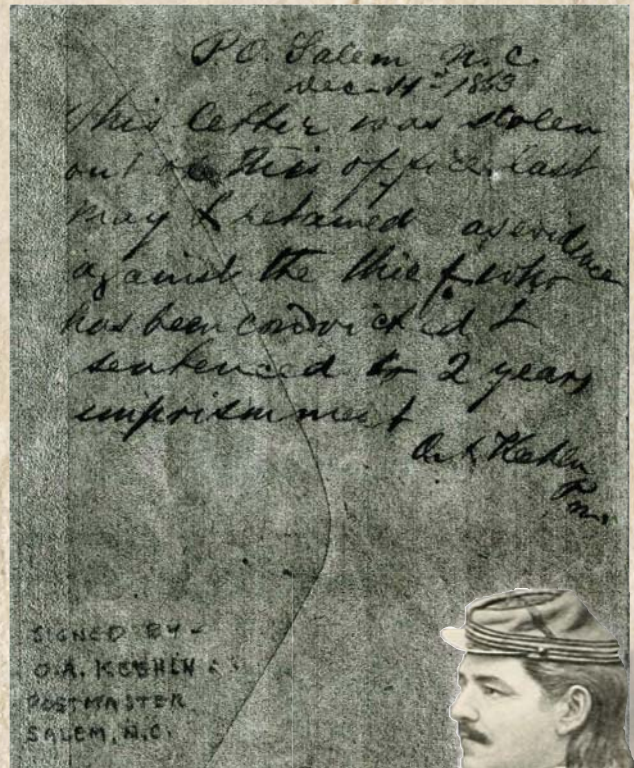 P.O. Salem N.C.
Dec. 14th 1863
This letter was stolen
out of this office last
May & retained as evidence
against the thief who
has been convicted &
sentenced to 2 years
imprisonment
O.A. Keehln
P.M.
SIGNED BY -
O.A. KEEHLN
POSTMASTER
SALEM, N.C.